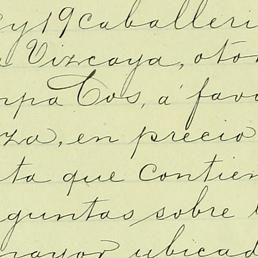 y 19 caballeri
Vizcaya, oto
mpa Cos, á favo
za, en precio
ta que contien
guntas sobre l
mayor ubicad